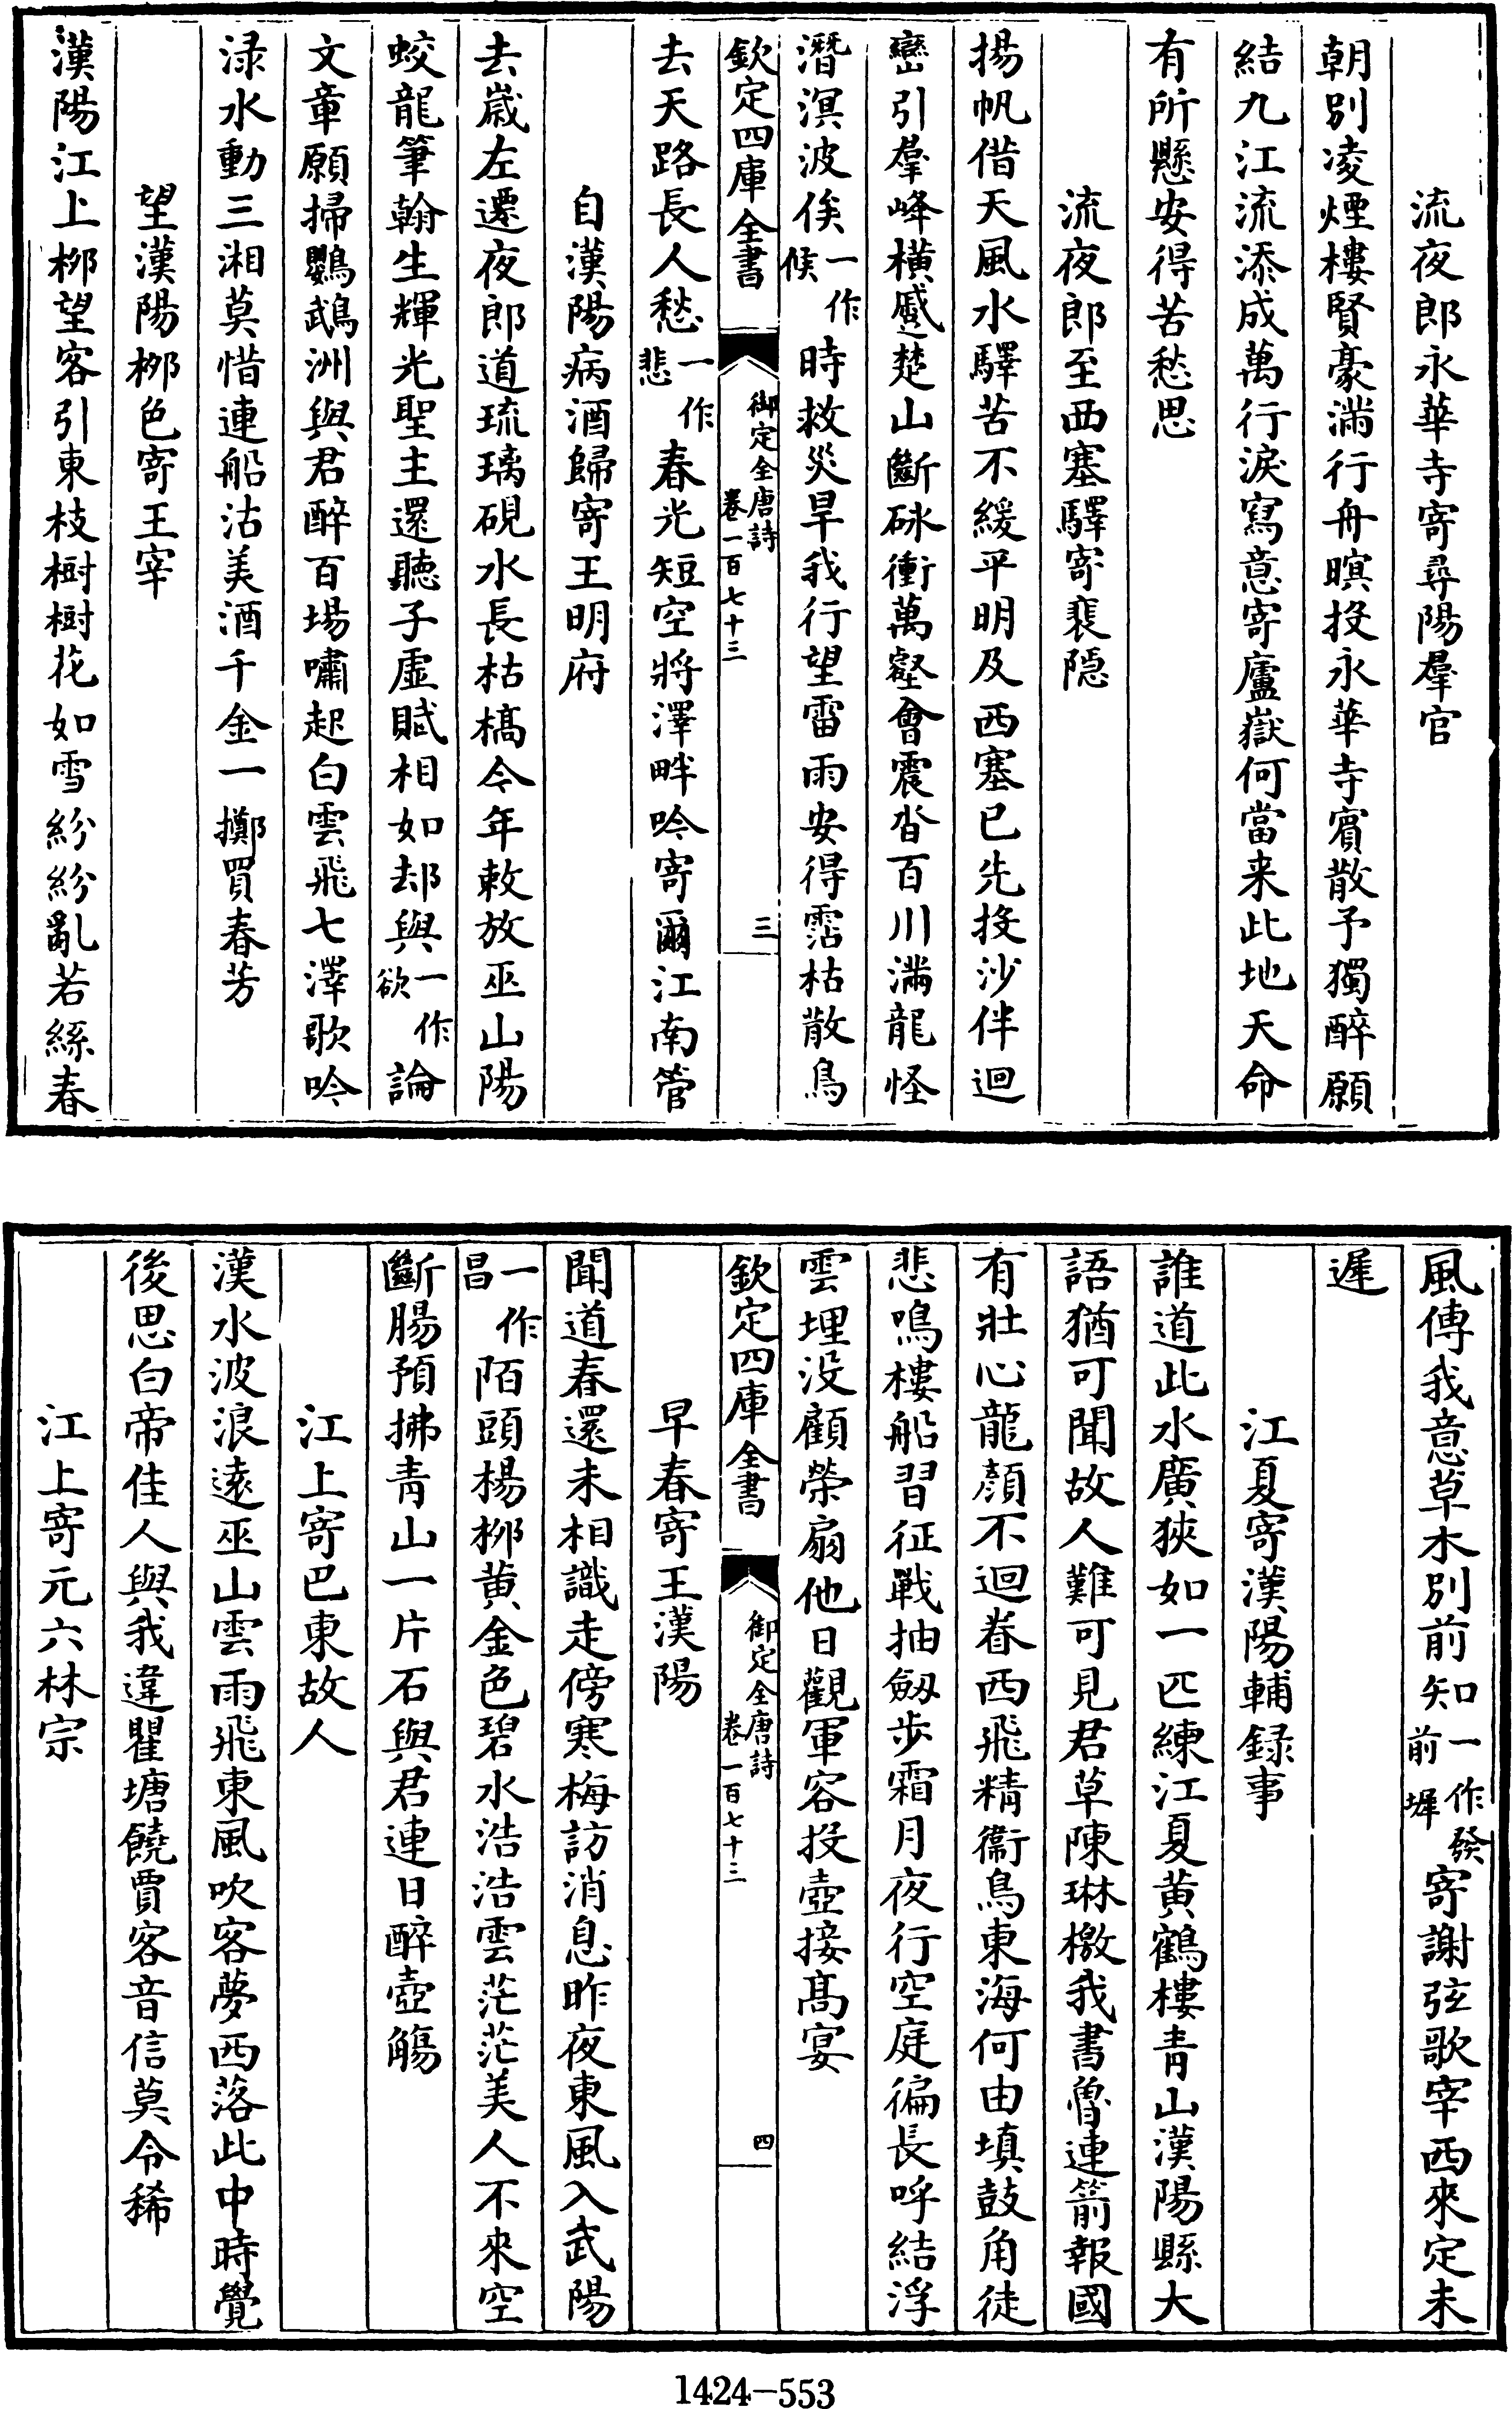 流夜郎永華寺寄尋陽羣官
朝別凌煙樓賢豪滿行舟暝投永華寺賓散予獨醉願
結九江流添成萬行淚寫意寄廬嶽何當来此地天命
有所懸安得苦愁思
流夜郎至西塞驛寄裴隠
揚帆借天風水驛苦不緩平明及西塞已先投沙伴迴
巒引羣峰橫蹙楚山斷砅衝萬壑會震沓百川滿龍怪
潛溟波俟一作候時救災旱我行望雷雨安得霑枯散鳥
欽定四庫全書 御定全唐詩卷一百七十三 三
去天路長人愁一作悲春光短空將澤畔吟寄爾江南管
自漢陽病酒歸寄王明府
去歲左遷夜郎道琉璃硯水長枯槁今年敕放巫山陽
蛟龍筆翰生輝光聖主還聽子虛賦相如却與一作欲論
文章願掃鸚鵡洲與君醉百場嘯起白雲飛七澤歌吟
淥水動三湘莫惜連船沽美酒千金一擲買春芳
望漢陽栁色寄王宰
漢陽江上栁望客引東枝樹樹花如雪紛紛亂若絲春
風傳我意草木別前知一作發前墀寄謝弦歌宰西來定未
遲
江夏寄漢陽輔録事
誰道此水廣狹如一匹練江夏黃鶴樓青山漢陽縣大
語猶可聞故人難可見君草陳琳檄我書魯連箭報國
有壯心龍顏不迴眷西飛精衞鳥東海何由填鼓角徒
悲鳴樓船習征戰抽劒步霜月夜行空庭徧長呼結浮
雲埋没顧榮扇他日觀軍容投壺接髙宴
欽定四庫全書 御定全唐詩卷一百七十三 四
早春寄王漢陽
聞道春還未相識走傍寒梅訪消息昨夜東風入武陽
一作昌陌頭楊栁黄金色碧水浩浩雲茫茫美人不來空
斷腸預拂青山一片石與君連日醉壺觴
江上寄巴東故人
漢水波浪遠巫山雲雨飛東風吹客夢西落此中時覺
後思白帝佳人與我違瞿塘饒賈客音信莫令稀
江上寄元六林宗
1424-553